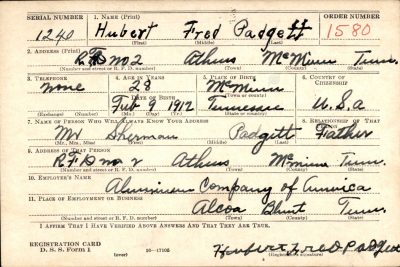 SERIAL NUMBER 1. NAME (Print) ORDER NUMBER
1240 Hubert Fred Padgett 1580
(First) (Middle) (Last)
2. ADDRESS (Print)
R.F.D no 2 Athens McMinn Tenn.
(Number and street or R. F. D. number) (Town) (County) (State)
3. TELEPHONE 4. AGE IN YEARS 5. PLACE OF BIRTH 6. COUNTRY OF CITIZENSHIP
none 28 McMinn
DATE OF BIRTH (Town or county)
Feb 9 1912 Tennessee U.S.a
(Exchange) (Number) (Mo.) (Day) (Yr.) (State or country)
7. NAME OF PERSON WHO WILL ALWAYS KNOW YOUR ADDRESS 8. RELATIONSHIP OF THAT PERSON
Mr Sherman Padgett Father
(Mr., Mrs., Miss) (First) (Middle) (Last)
9. ADDRESS OF THAT PERSON
R.F.D no 2 Athens McMinn Tenn.
(Number and street or R. F. D. number) (Town) (County) (State)
10. EMPLOYER'S NAME
Aluminum Company of America
11. PLACE OF EMPLOYMENT OR BUSINESS
Alcoa Blunt Tenn.
(Number and street or R. F. D. number) (Town) (County) (State)
I AFFIRM THAT I HAVE VERIFIED ABOVE ANSWERS AND THAT THEY ARE TRUE.
REGISTRATION CARD
D. S. S. Form 1 (over) 16—17105 Hubert Fred Padgett
(Registrant's signature)